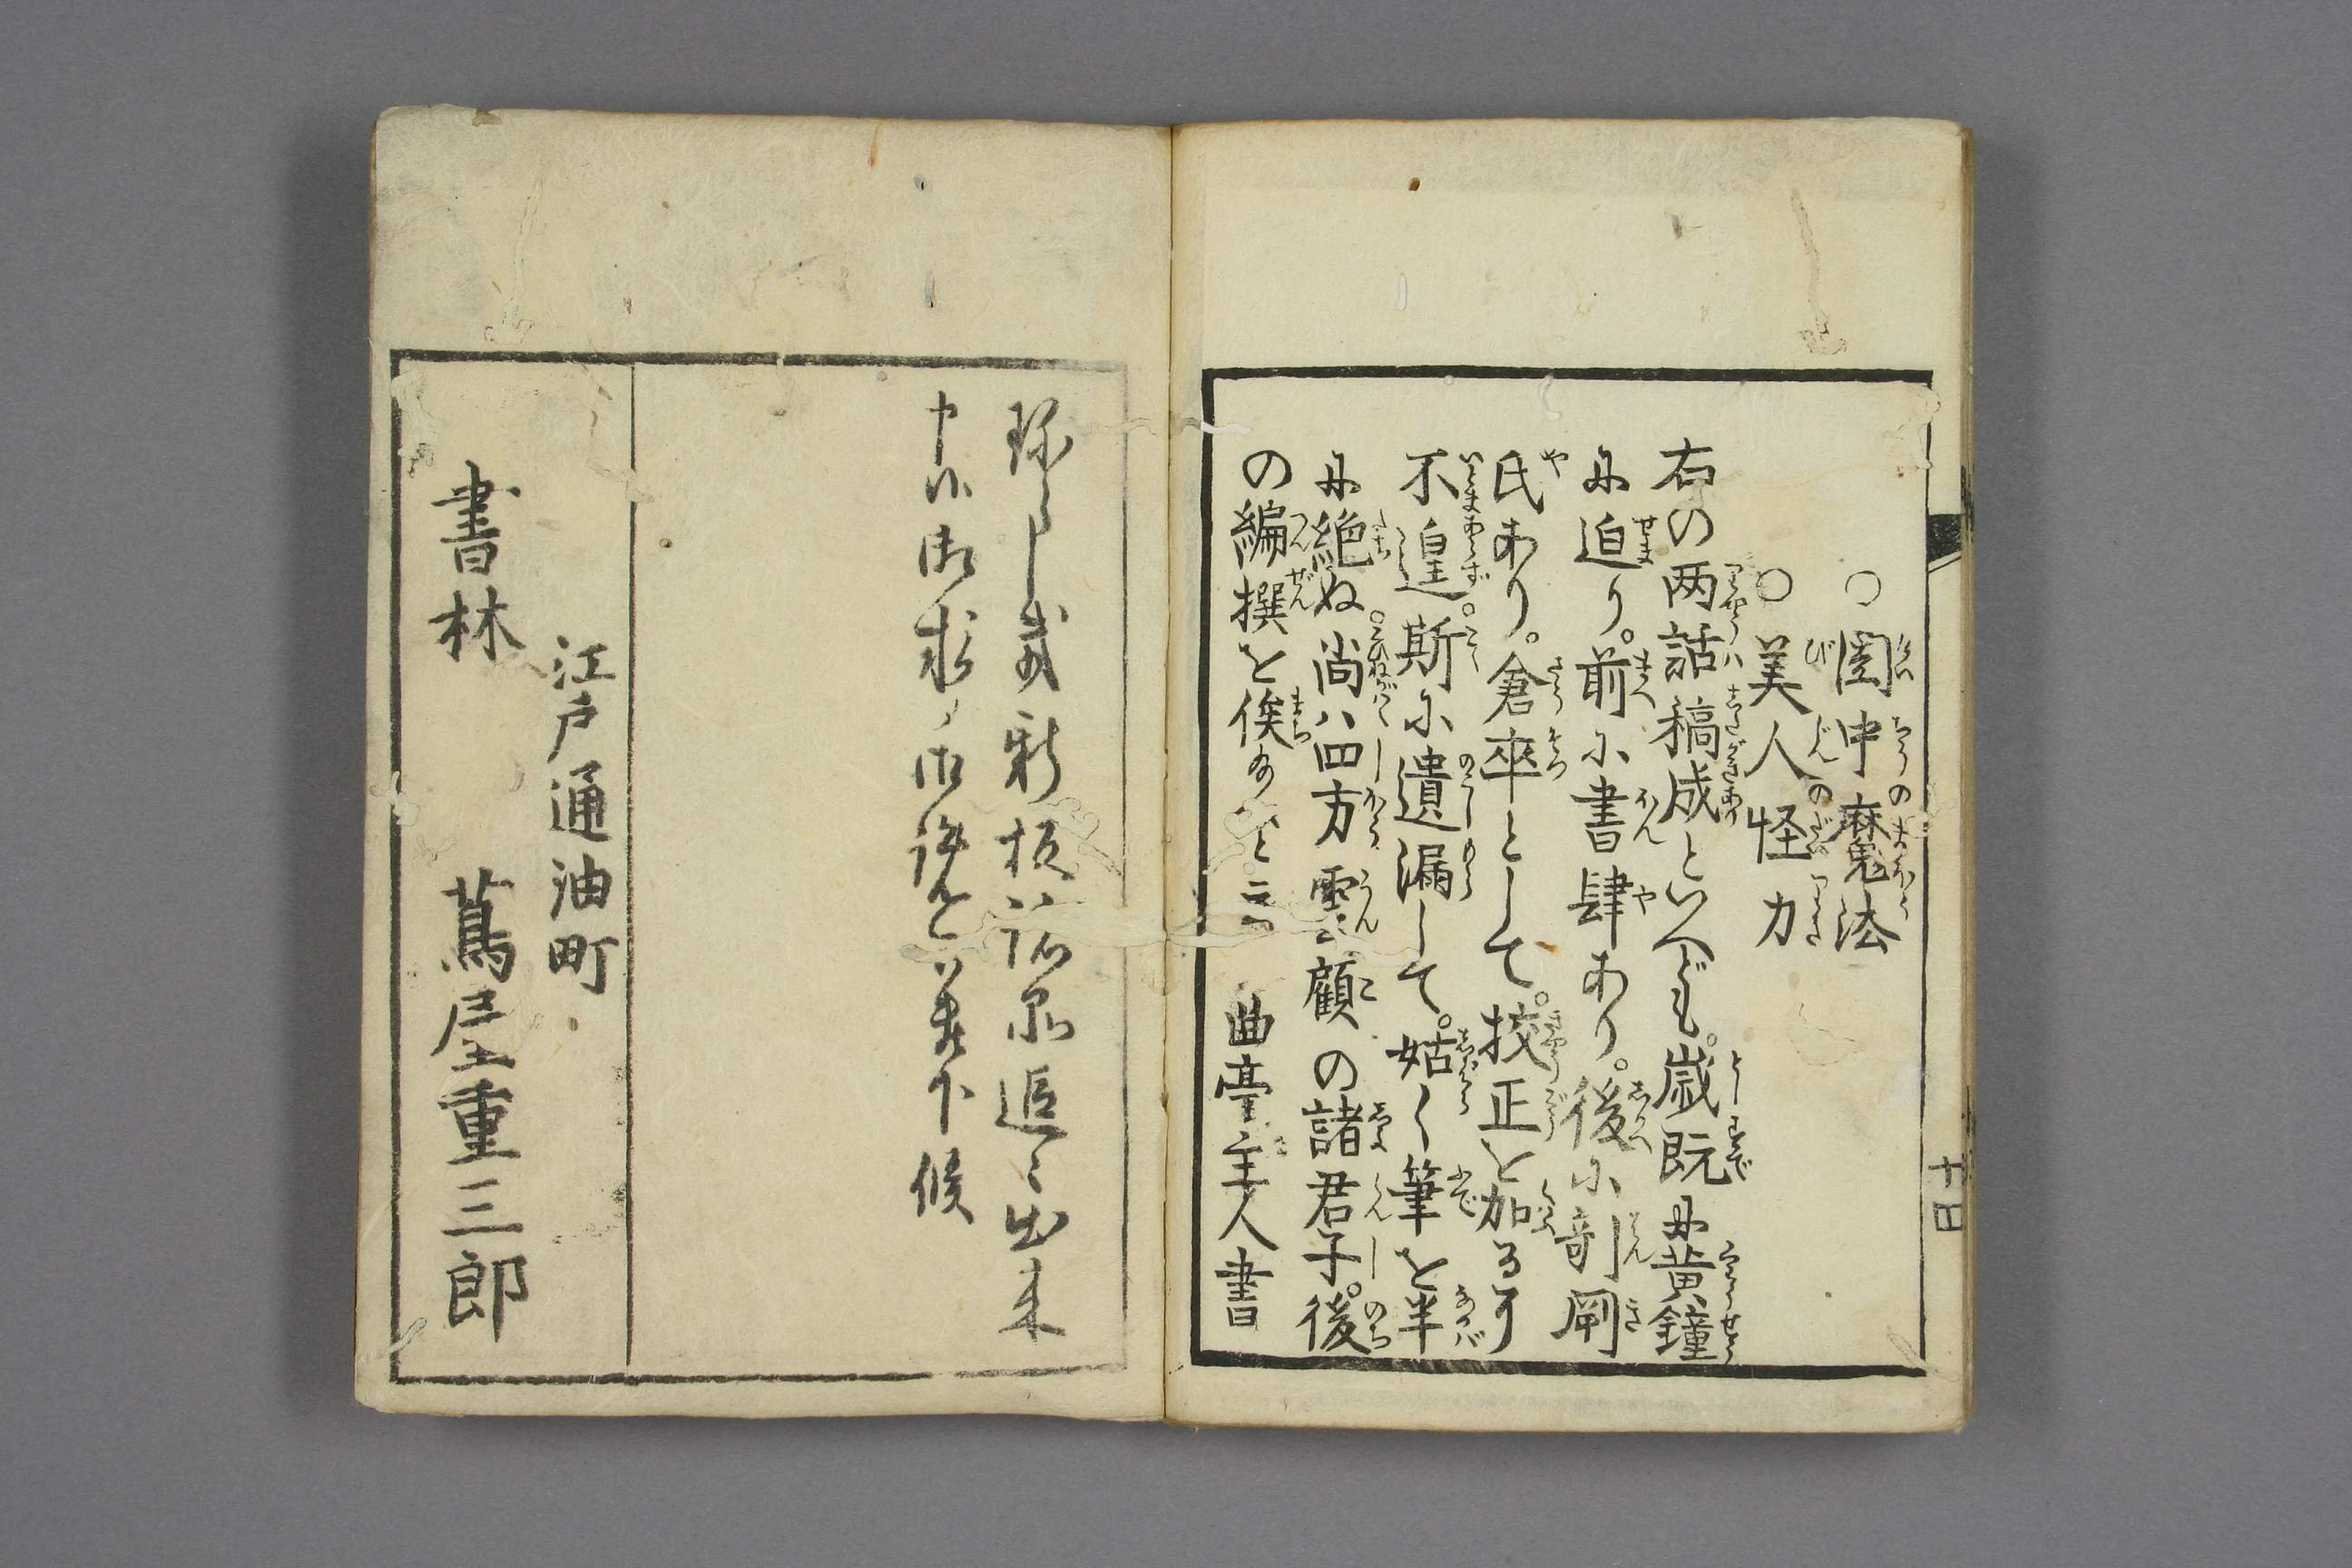 ○圊中魔法
○美人怪力
右の两話稿成といへども。歳既に黄鐘
に迫り。前に書肆あり。後に剞劂
氏あり。倉卒として。挍正を加るに
不遑。斯に遺漏して。姑く筆を半
に絶ぬ。尚八四方雲顧の諸君子。後
の編撰を俟給へと云
曲亭主人書
十四
珎しき新板諸品追々出来
申候御求メ御評被下候
江戸通油町
書林 蔦屋重三郎